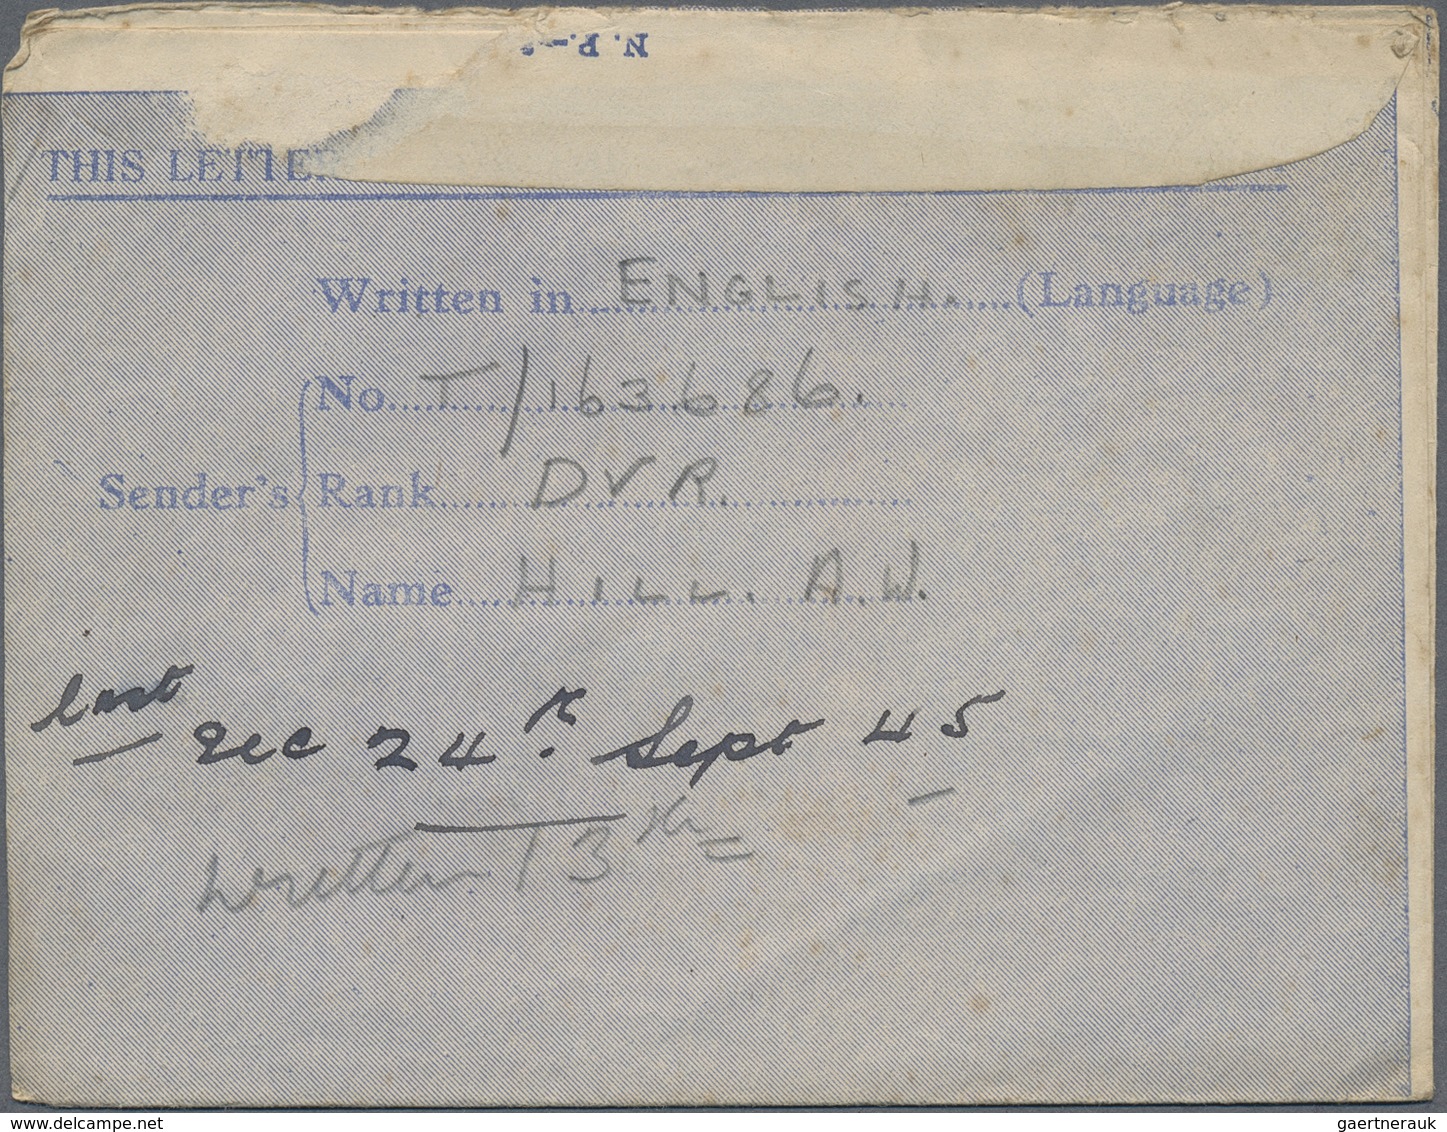 N. P.
THIS LETTER
Written in ENGLISH. (Language)
No. T/163686.
Sender's Rank DVR.
Name HILL. A.W.
last
rec 24th Sept 45
written 13th
gaertnerauk